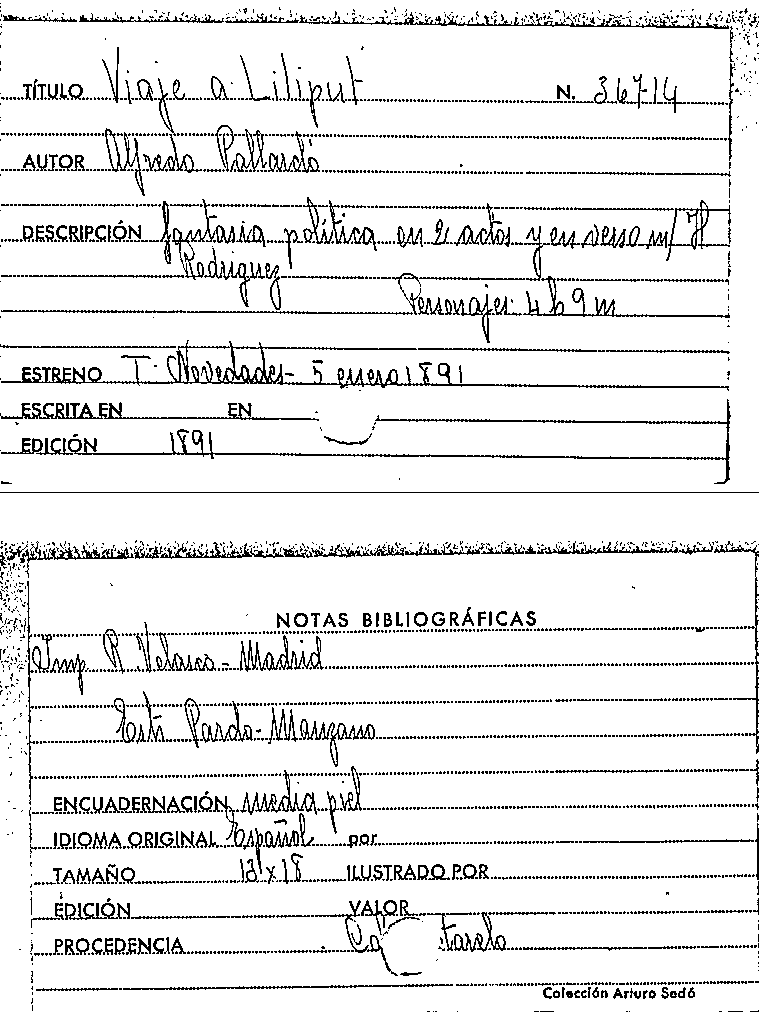 TÍTULO Viaje a Liliput N. 36714
AUTOR Alfredo Pallardó
DESCRIPCIÓN fantasia política en 2 actos y en verso m/ H
Rodriguez
Personajes: 4 h 9 m
ESTRENO T. Novedades - 5 enero 1891
ESCRITA EN EN
EDICIÓN 1891
NOTAS BIBLIOGRÁFICAS
Imp R. Velasco - Madrid
Estr Pardo - Manzano
ENCUADERNACIÓN media piel
IDIOMA ORIGINAL Español por
TAMAÑO x 18 ILUSTRADO POR
EDICIÓN VALOR
PROCEDENCIA tarelo
Colección Arturo Sedó